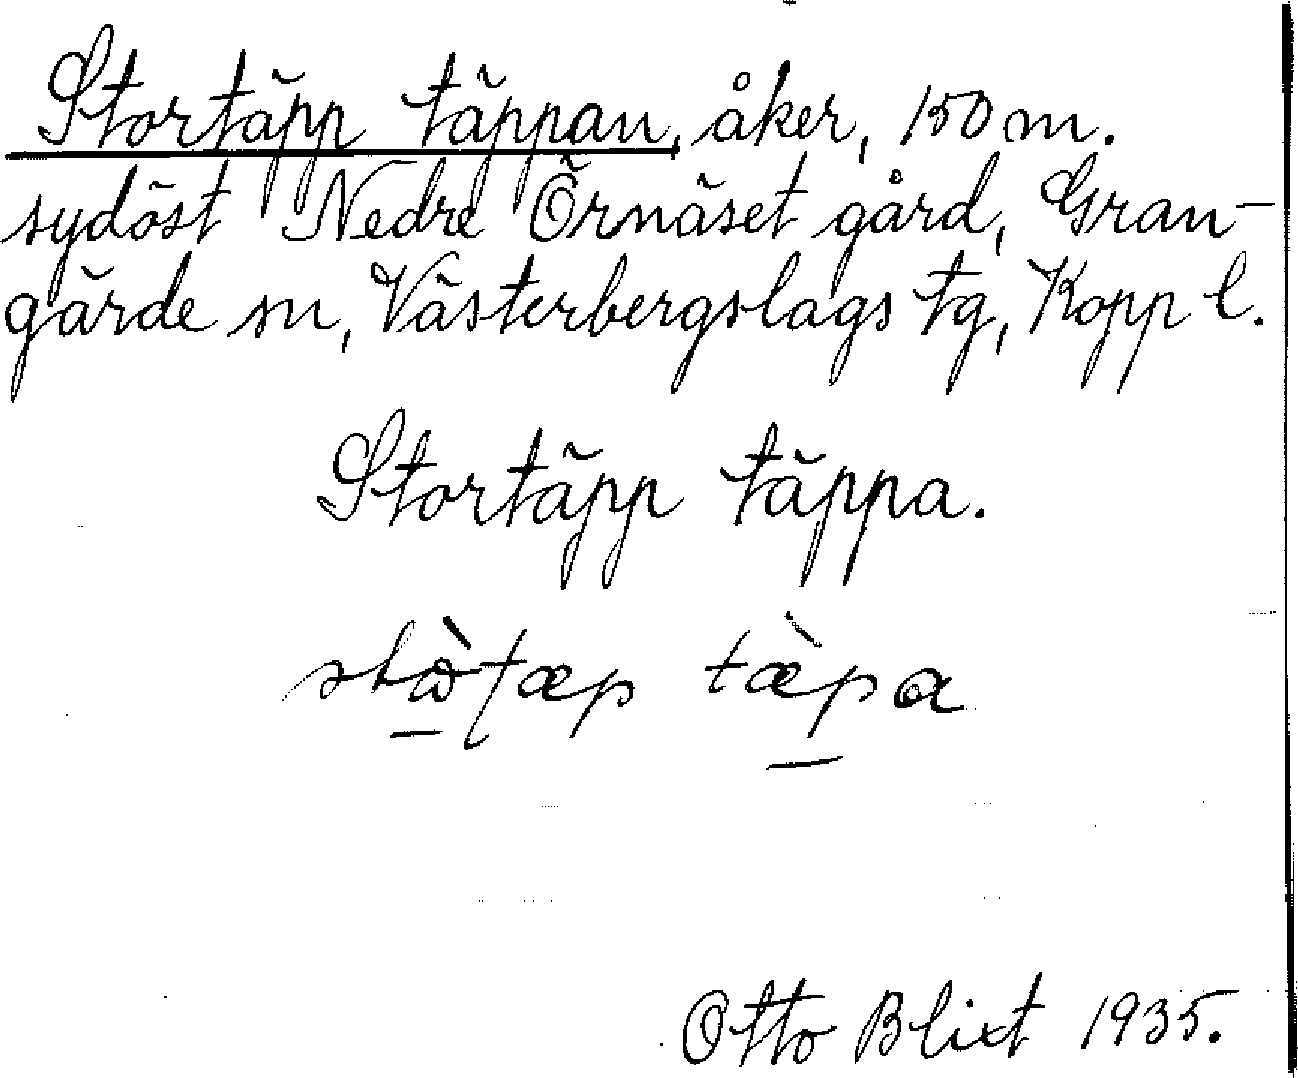 Stortäpp täppan, åker, 150 m.
sydöst Nedre Örnäset gård, Gran-
gärde sn, Västerbergslags tg, Kopp l.
Stortäpp täppa.
stὼtæp tæ̀pa
Otto Blixt 1935.